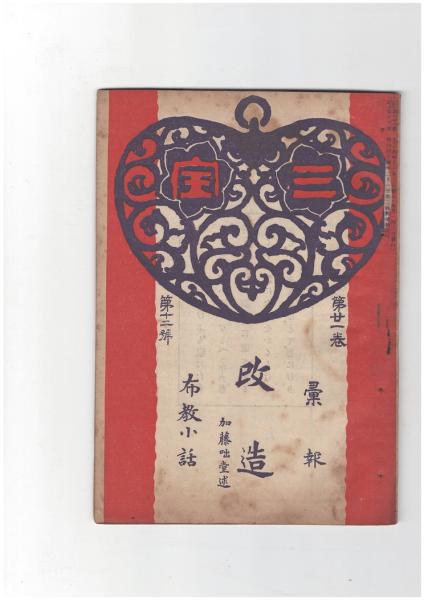 三宝
第廿一卷
第十二號
彙報
改造
加藤咄堂述
布教小話